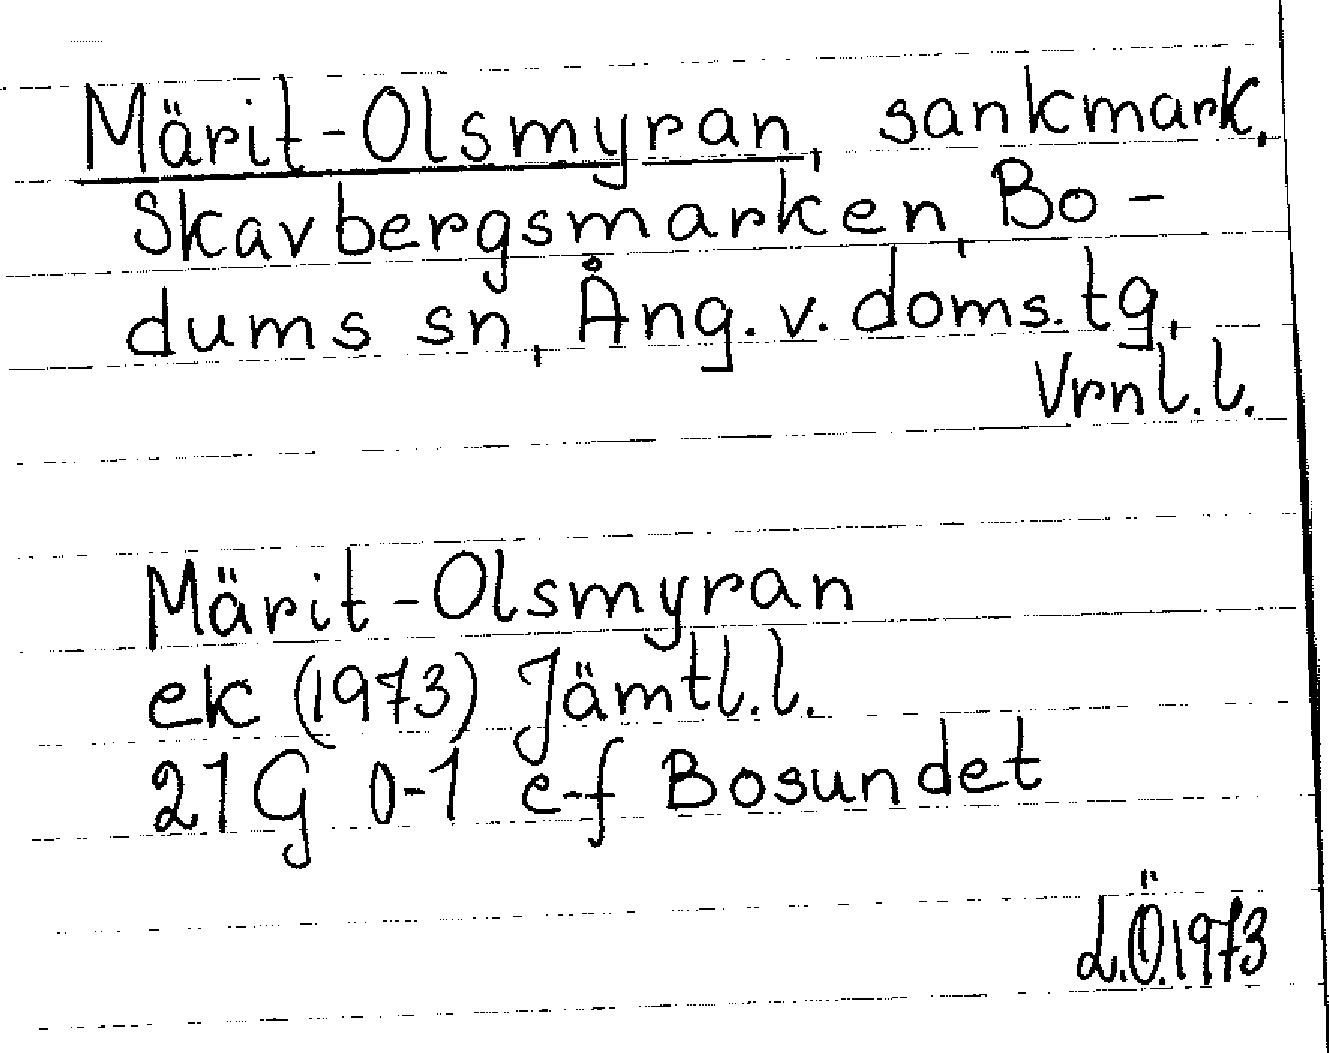 Märit-Olsmyran, sankmark.
Skavbergsmarken, Bo-
dums sn, Ång. v. doms. tg,
Vrnl.l.
Märit-Olsmyran
ek (1973) Jämtl.l.
21G 0-1 e-f Bosundet
L.Ö.1973